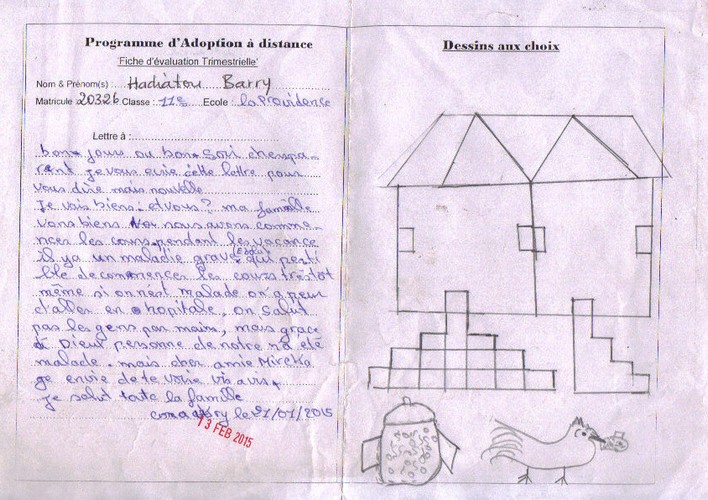 Programme d'Adoption à distance
Fiche d'évaluation Trimestrielle'
Nom & Prénom(s) : Hadiatou Barry
Matricule 20326 Classe : 11e Ecole : la Providence
Lettre à :
bon jours ou bon Sori cherspa-
rent je vous envie cette lettre pour
vous dire mais nouvelle
Je vais biens et vous ? ma famille
vons biens Nor nous avons comme-
nces les cours pendant les vacance
il ya un maladie grave Ebola qui
de commences les cours très tôt
même si on n'est malade on a peur
d'aller en hopitale, on Salut
pas les gens par mains, mais grace
à Dieu personne de notre na été
malade. mais cher amie Mireka
je envie de te voire
je salut toute la famille
le 21/01/2015
13 FEB 2015
Dessins aux choix